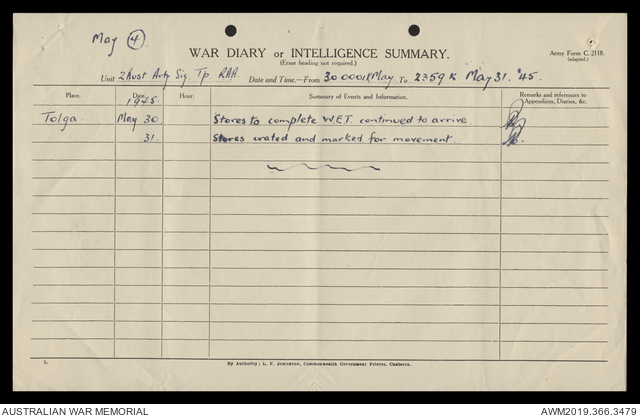 May (4).
WAR DIARY or INTELLIGENCE SUMMARY.
(Erase heading not required.)
Army Form C. 2118.
(adapted.)
Unit 2 Aust Arty Sig. Tp RAA. Date and Time.—From 30 0001K May. To 2359K May 31. '45.
Place. Date. Hour. Summary of Events and Information. Remarks and references to Appendices, Diaries, &c.
1945.
Tolga. May 30 Stores to complete W.E.T. continued to arrive
31. Stores crated and marked for movement.
By Authority: L. F. Johnston, Commonwealth Government Printer, Canberra.
AUSTRALIAN WAR MEMORIAL
AWM2019.366.3479